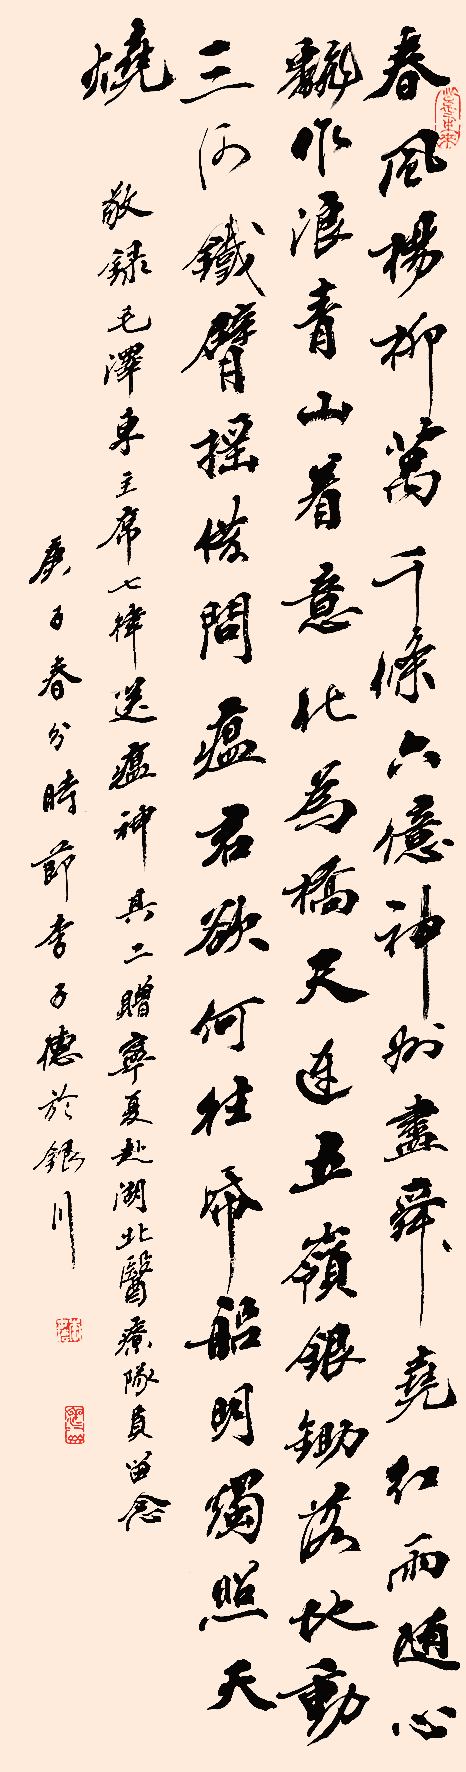 春風楊柳萬千條六億神州盡舜堯紅雨随心
翻作浪青山着意化為橋天連五嶺銀鋤落地動
三河鐵臂搖借問瘟君欲何往帋船明燭照天
燒
敬錄毛澤東主席七律送瘟神其二贈寧夏赴湖北醫療隊員留念
庚子春分時節李子德於銀川